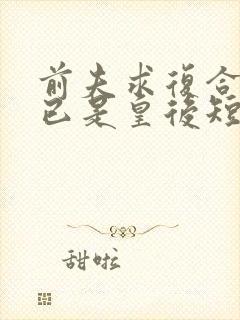 前夫求復合
已是皇後短
甜啦